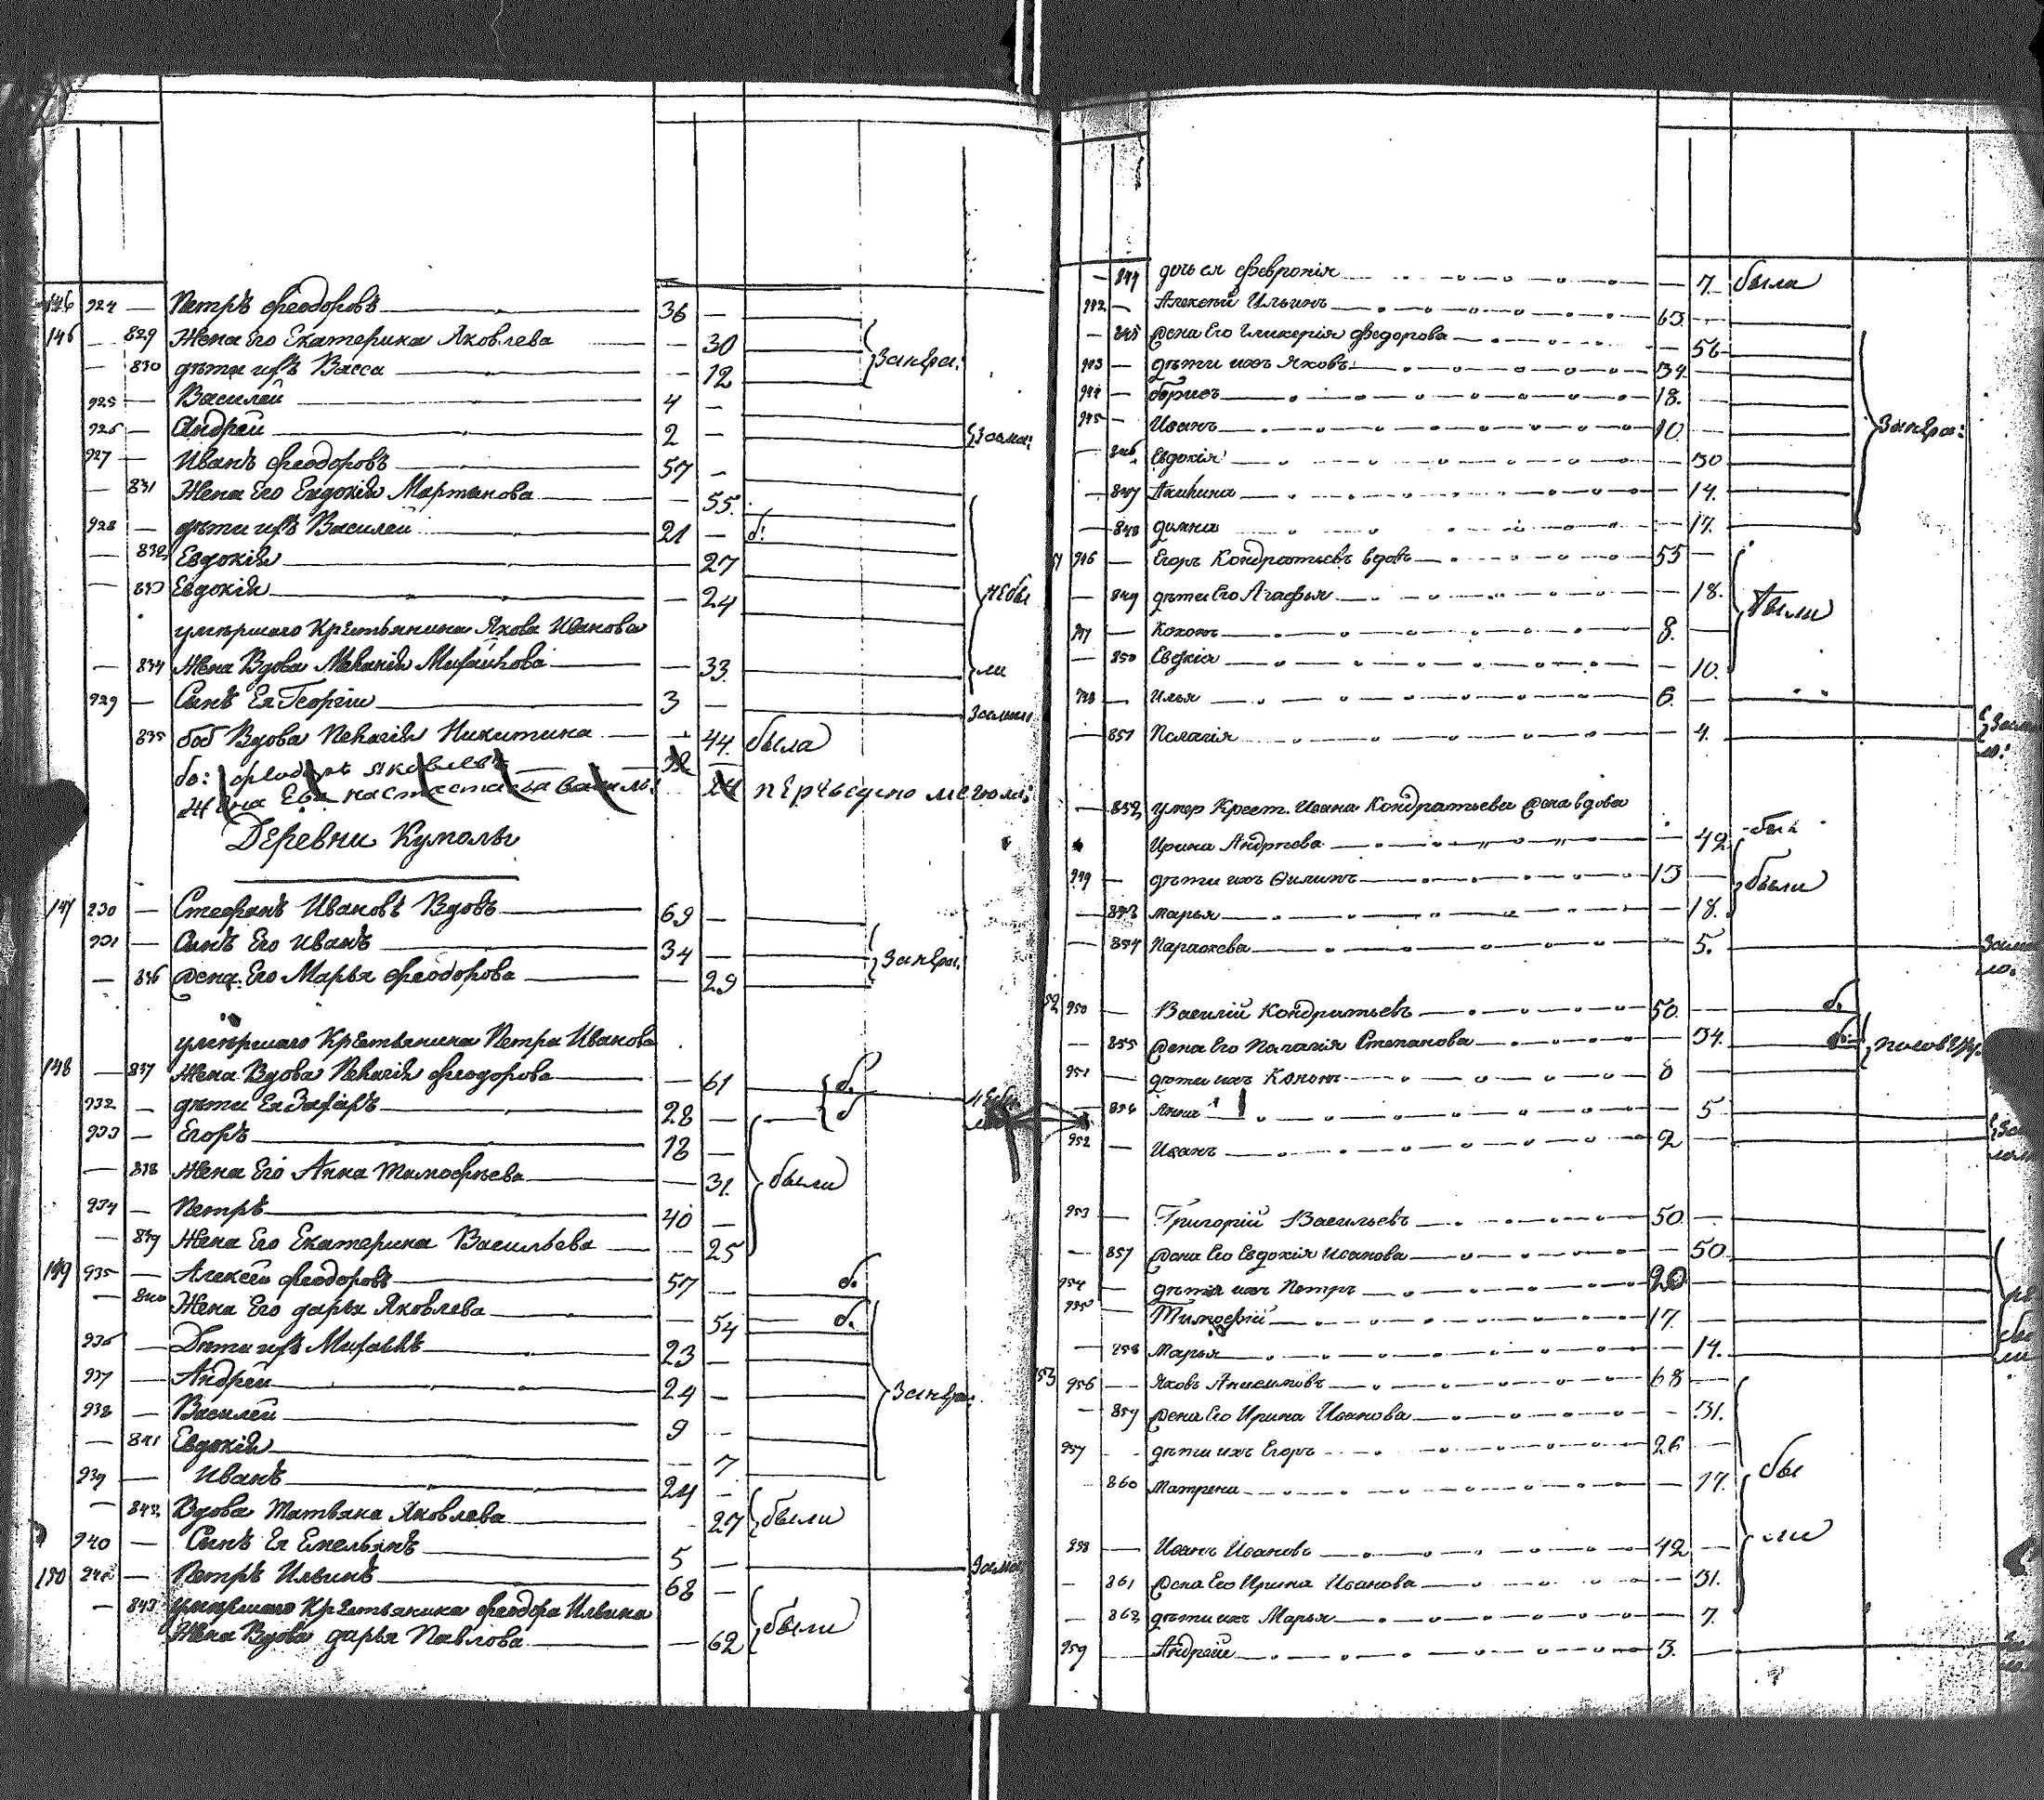 146 924 — Петръ Феодоровъ 36 —
146 — 829 Жена Его Екатерина Яковлева — 30
— 830 дѣти ихъ Васса — 12
925 — Василей 4 —
926 — Андрей 2 —
927 — Иванъ Феодоровъ 57 —
— 831 Жена Его Евдокія Мартинова — 55
928 — дѣти ихъ Василей 21 — б:
— 832 Евдокія — 27
— 833 Евдокія — 24
небы
умершаго Крѣстьянина Якова Иванова
— 834 Жена Вдова Меланія Михайлова — 33
ли
929 — Сынъ Ея Георгіи 3 —
835 боб Вдова Пелагія Никитина — 44 была
бо: Феодоръ Яковлевъ
Жена Ево настасья василь:
Деревни Кумолы
147 930 — Стефанъ Ивановъ Вдовъ 69 —
931 — Сынъ Его Иванъ 34 —
— 836 Жена Его Марья Феодорова — 29
умершаго Крѣстьянина Петра Иванова
148 — 837 Жена Вдова Пелагія Феодорова — 61 б.
932 — дѣти Ея Захаръ 28 — б
933 — Егоръ 18 —
— 838 Жена Его Анна Тимофѣева — 31 были
934 — Петръ 40 —
— 839 Жена Его Екатерина Васильева — 25
149 935 — Алексѣй Феодоровъ 57 — б.
— 840 Жена Его дарья Яковлева — 54 б.
936 — Дѣти ихъ Михайлъ 23 —
937 — Андреи 24 —
938 — Василей 9 —
— 841 Евдокія — 7
939 — Иванъ 24 —
— 842 Вдова Татьяна Яковлева — 27 были
940 — Сынъ Ея Емельянъ 5 —
150 941 — Петръ Ильинъ 68 —
— 843 умершаго Крѣстьянина Феодора Ильина
Жена Вдова дарья Павлова — 62 были
— 844 дочь ея Февронія — 7 была
942 — Алексѣй Ильинъ 63 —
— 845 Жена Его Гликерія Федорова — 56
943 — дѣти ихъ Яковъ 34 —
944 — борисъ 18. —
945 — Иванъ 10 —
— 846 Евдокія — 30
— 847 Акилина — 14.
— 848 домна — 17.
946 — Егоръ Кондратьевъ вдовъ 55 —
— 849 дѣти Его Агафья — 18. были
947 — Кононъ 8. —
— 850 Евдокія — 10.
948 — Илья 6. —
— 851 Пелагія — 4.
— 852 умер Крест. Ивана Кондратьева Жена вдова
Ирина Андрѣева — 42
949 — дѣти ихъ Филипъ 13 — были
— 853 марья — 18.
— 854 параскева — 5.
52 950 — Василій Кондратьевъ 50 — б.
— 855 Жена Его Палагія Степанова — 34. б:
951 — дѣти ихъ Кононъ 8 —
— 856 Анна — 5
952 — Иванъ 2 —
953 — Григорій Васильевъ 50 —
— 857 Жена Его Евдокія Иванова — 50
954 — дѣти ихъ Петръ 20 —
955 — Тимофѣй 17. —
— 858 Марья — 14.
53 956 — Яковъ Анисимовъ 68 —
— 859 Жена Его Ирина Иванова — 31.
957 — дѣти ихъ Егоръ 26 — бы
— 860 матрена — 17.
958 — Иванъ Ивановъ 42 — ли
— 861 Жена Его Ирина Иванова — 31.
— 862 дѣти ихъ Марья — 7.
959 — Андрей 3. —